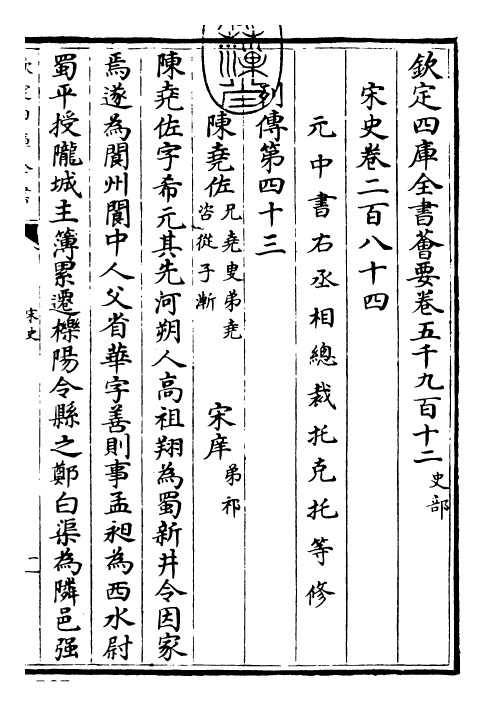 欽定四庫全書薈要卷五千九百十二 史部
宋史卷二百八十四
元中書右丞相總裁托克托等修
列傳第四十三
陳堯佐 兄堯叟弟堯咨從子漸 宋庠 弟祁
陳堯佐字希元其先河朔人高祖翔為蜀新井令因家
焉遂為閬州閬中人父省華字善則事孟昶為西水尉
蜀平授隴城主簿累遷櫟陽令縣之鄭白渠為隣邑强
宋史
一